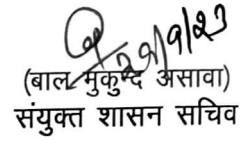 (बाल मुकुन्द असावा)
संयुक्त शासन सचिव